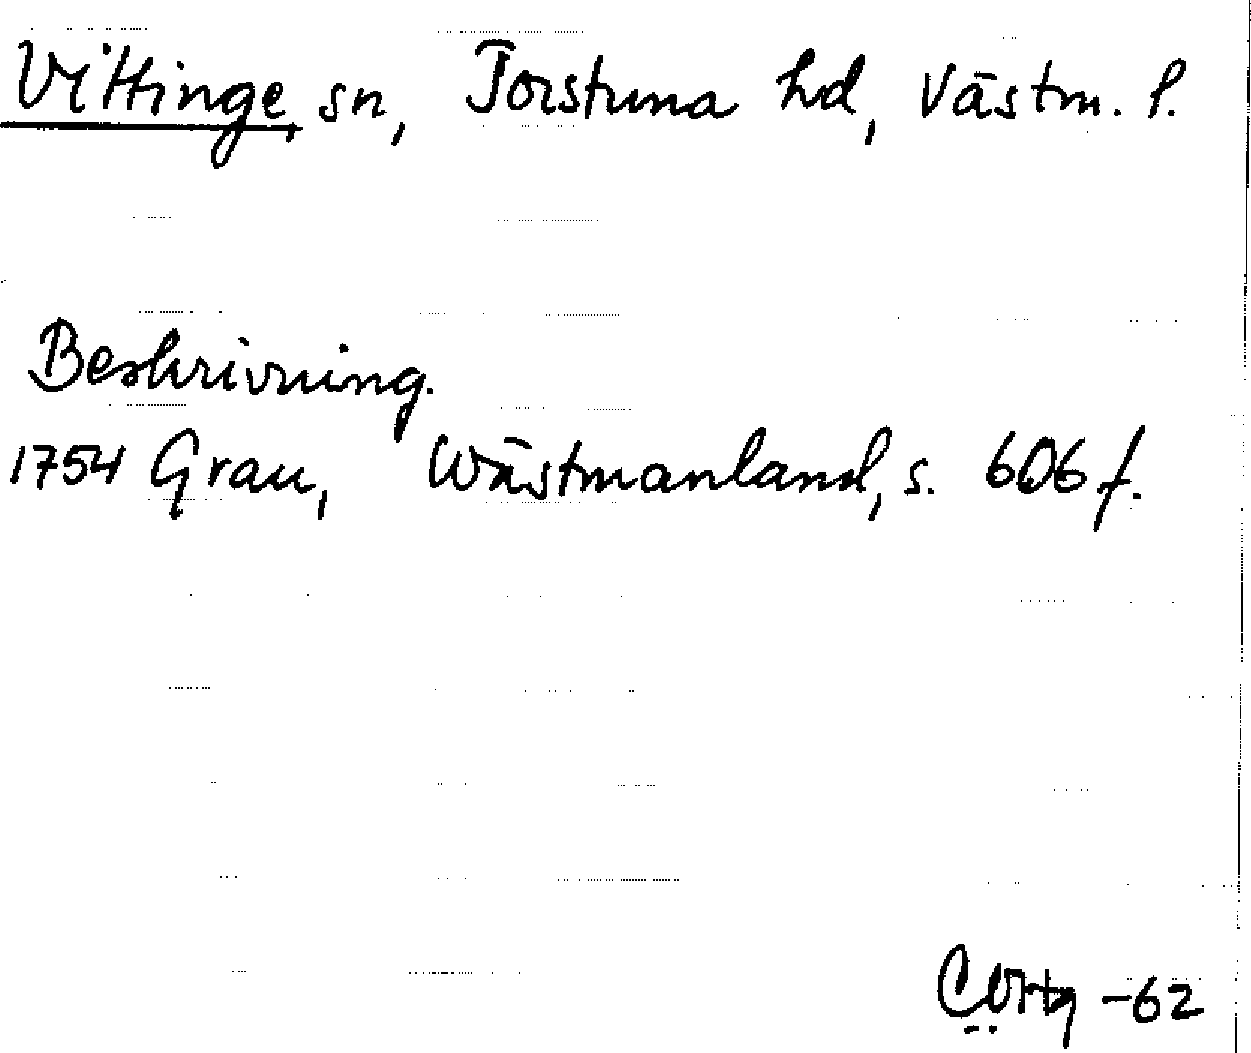 Vittinge, sn, Torstuna hd, Västm. l.
Beskrivning.
1754 Grau, Wästmanland, s. 606 f.
-62